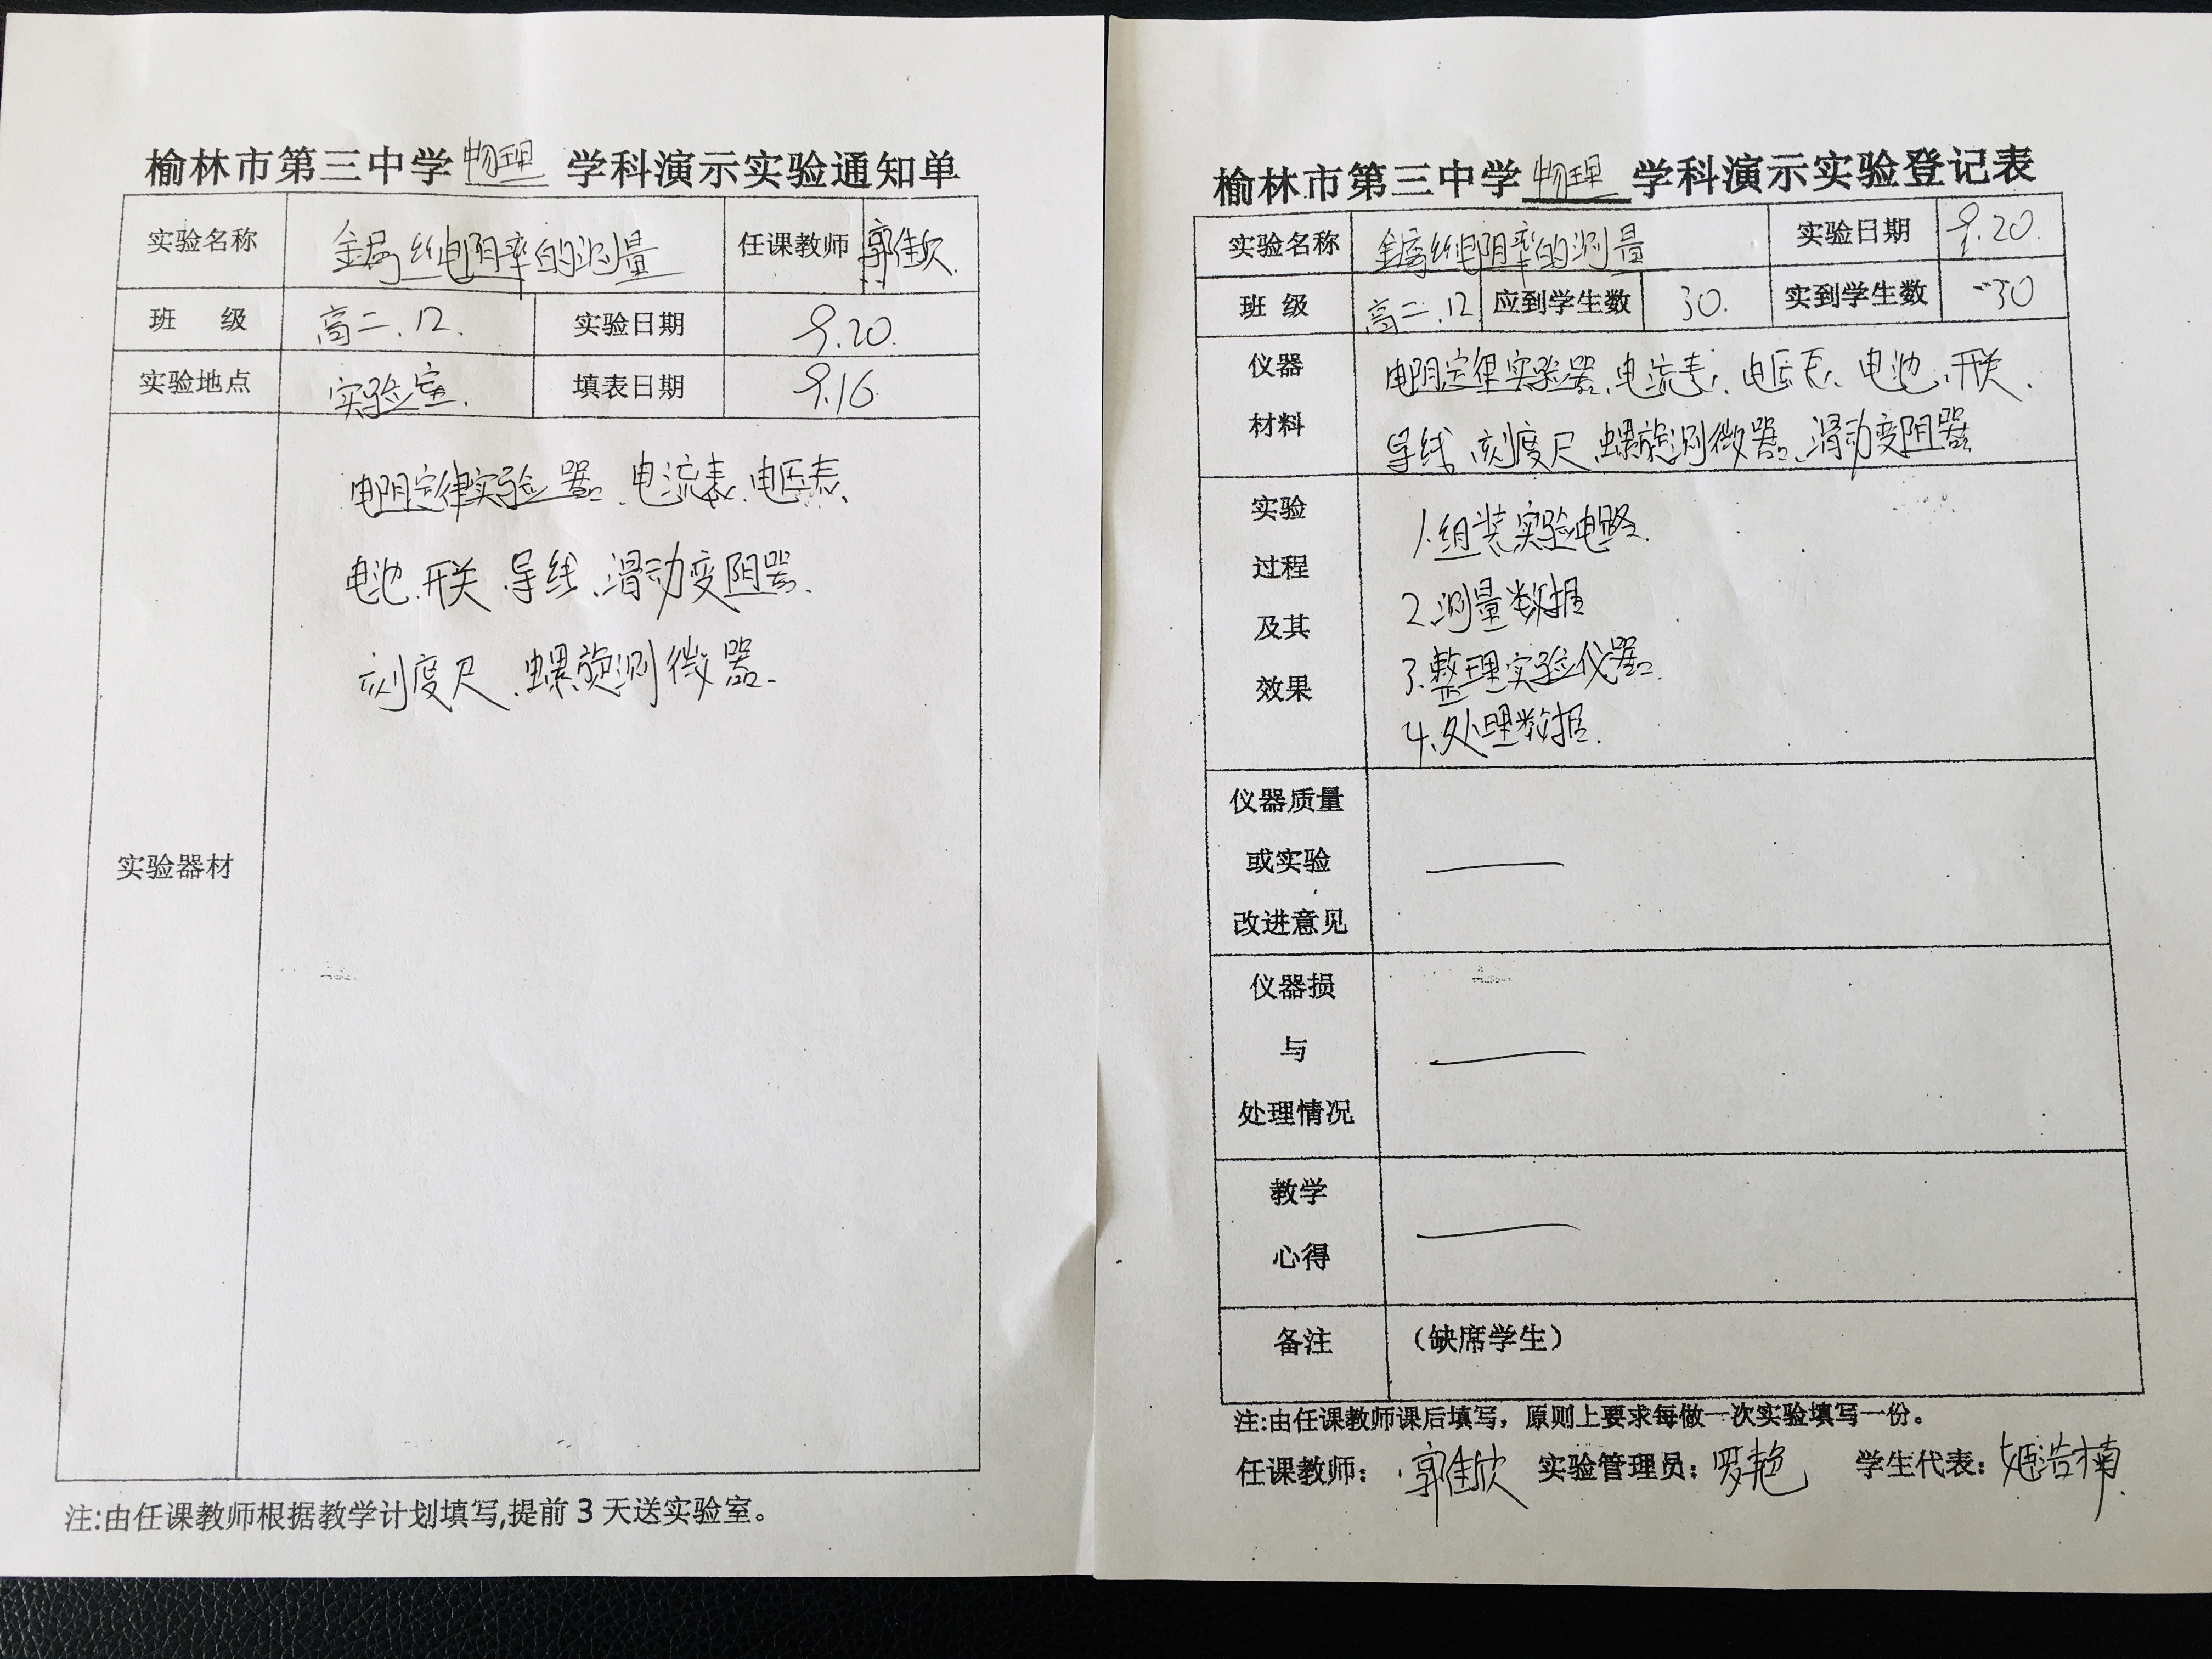 榆林市第三中学 物理 学科演示实验通知单
实验名称 金属丝电阻率的测量 任课教师 郭佳欣
班 级 高二.12. 实验日期 9.20.
实验地点 实验室. 填表日期 9.16
实验器材
电阻定律实验器、电流表、电压表、
电池、开关、导线、滑动变阻器、
刻度尺、螺旋测微器.
注:由任课教师根据教学计划填写,提前 3 天送实验室。
榆林市第三中学 物理 学科演示实验登记表
实验名称 金属丝电阻率的测量 实验日期 9.20.
班 级 高二.12 应到学生数 30. 实到学生数 30
仪器
材料
电阻定律实验器、电流表、电压表、电池、开关、
导线、刻度尺、螺旋测微器、滑动变阻器
实验
过程
及其
效果
1.组装实验电路.
2.测量数据
3.整理实验仪器.
4.处理数据.
仪器质量
或实验
改进意见
仪器损
与
处理情况
教学
心得
备注 (缺席学生)
注:由任课教师课后填写，原则上要求每做一次实验填写一份。
任课教师： 郭佳欣 实验管理员：罗艳 学生代表：姬浩楠